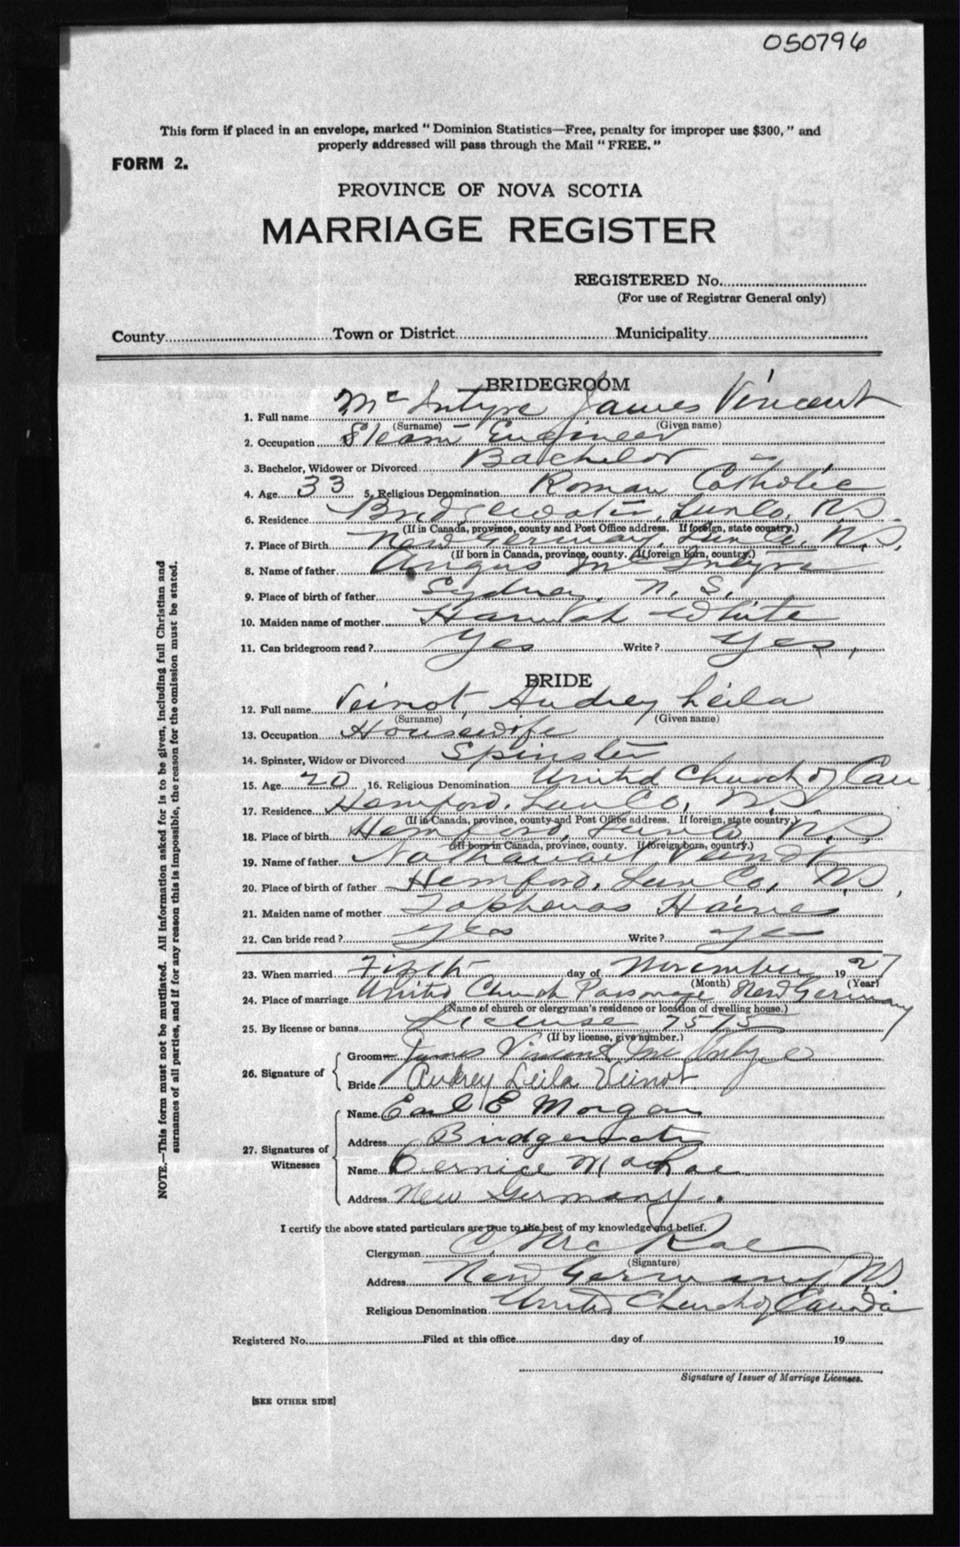 050796
This form if placed in an envelope, marked "Dominion Statistics—Free, penalty for improper use $300," and
properly addressed will pass through the Mail "FREE."
FORM 2.
PROVINCE OF NOVA SCOTIA
MARRIAGE REGISTER
REGISTERED No.
(For use of Registrar General only)
County Town or District Municipality
BRIDEGROOM
1. Full name McIntyre James Vincent
(Surname) (Given name)
2. Occupation Steam Engineer
3. Bachelor, Widower or Divorced Bachelor
4. Age 33 5. Religious Denomination Roman Catholic
6. Residence Bridgewater, Lun Co, NS
(If in Canada, province, county and Post Office address. If foreign, state country.)
7. Place of Birth New Germany, Lun Co, N.S.
(If born in Canada, province, county. If foreign born, country.)
8. Name of father Angus McIntyre
9. Place of birth of father Sydney, N.S.
10. Maiden name of mother Hannah White
11. Can bridegroom read? Yes Write? Yes,
BRIDE
12. Full name Veinot, Audrey Leila
(Surname) (Given name)
13. Occupation Housewife
14. Spinster, Widow or Divorced Spinster
15. Age 20 16. Religious Denomination United Church of Can
17. Residence Hemford, Lun Co, N.S.
(If in Canada, province, county and Post Office address. If foreign, state country.)
18. Place of birth Hemford, Lun Co N.S.
(If born in Canada, province, county. If foreign born, country.)
19. Name of father Veinot
20. Place of birth of father Hemford, Lun Co, N.S.
21. Maiden name of mother Haines
22. Can bride read? Yes Write? Yes
23. When married Fifth day of November 1927
(Month) (Year)
24. Place of marriage United Church Parsonage New Germany
(Name of church or clergyman's residence or location of dwelling house.)
25. By license or banns License 7575
(If by license, give number.)
26. Signature of
Groom James Vincent McIntyre
Bride Audrey Leila Veinot
27. Signatures of Witnesses
Name Earl E Morgan
Address Bridgewater
Name Bernice MacRae
Address New Germany.
I certify the above stated particulars are true to the best of my knowledge and belief.
Clergyman McRae
(Signature)
Address New Germany NS
Religious Denomination United Church of Canada
Registered No. Filed at this office day of 19
Signature of Issuer of Marriage Licenses.
[SEE OTHER SIDE]
NOTE.—This form must not be mutilated. All information asked for is to be given, including full Christian and
surnames of all parties, and if for any reason this is impossible, the reason for the omission must be stated.